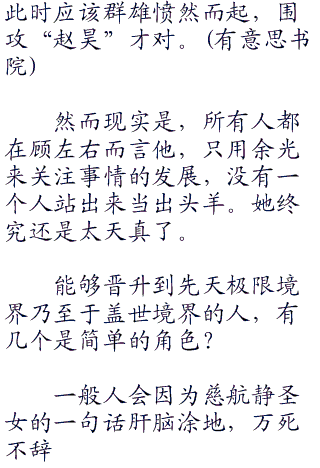 此时应该群雄愤然而起，围
攻“赵昊”才对。(有意思书
院)
然而现实是，所有人都
在顾左右而言他，只用余光
来关注事情的发展，没有一
个人站出来当出头羊。她终
究还是太天真了。
能够晋升到先天极限境
界乃至于盖世境界的人，有
几个是简单的角色？
一般人会因为慈航静圣
女的一句话肝脑涂地，万死
不辞